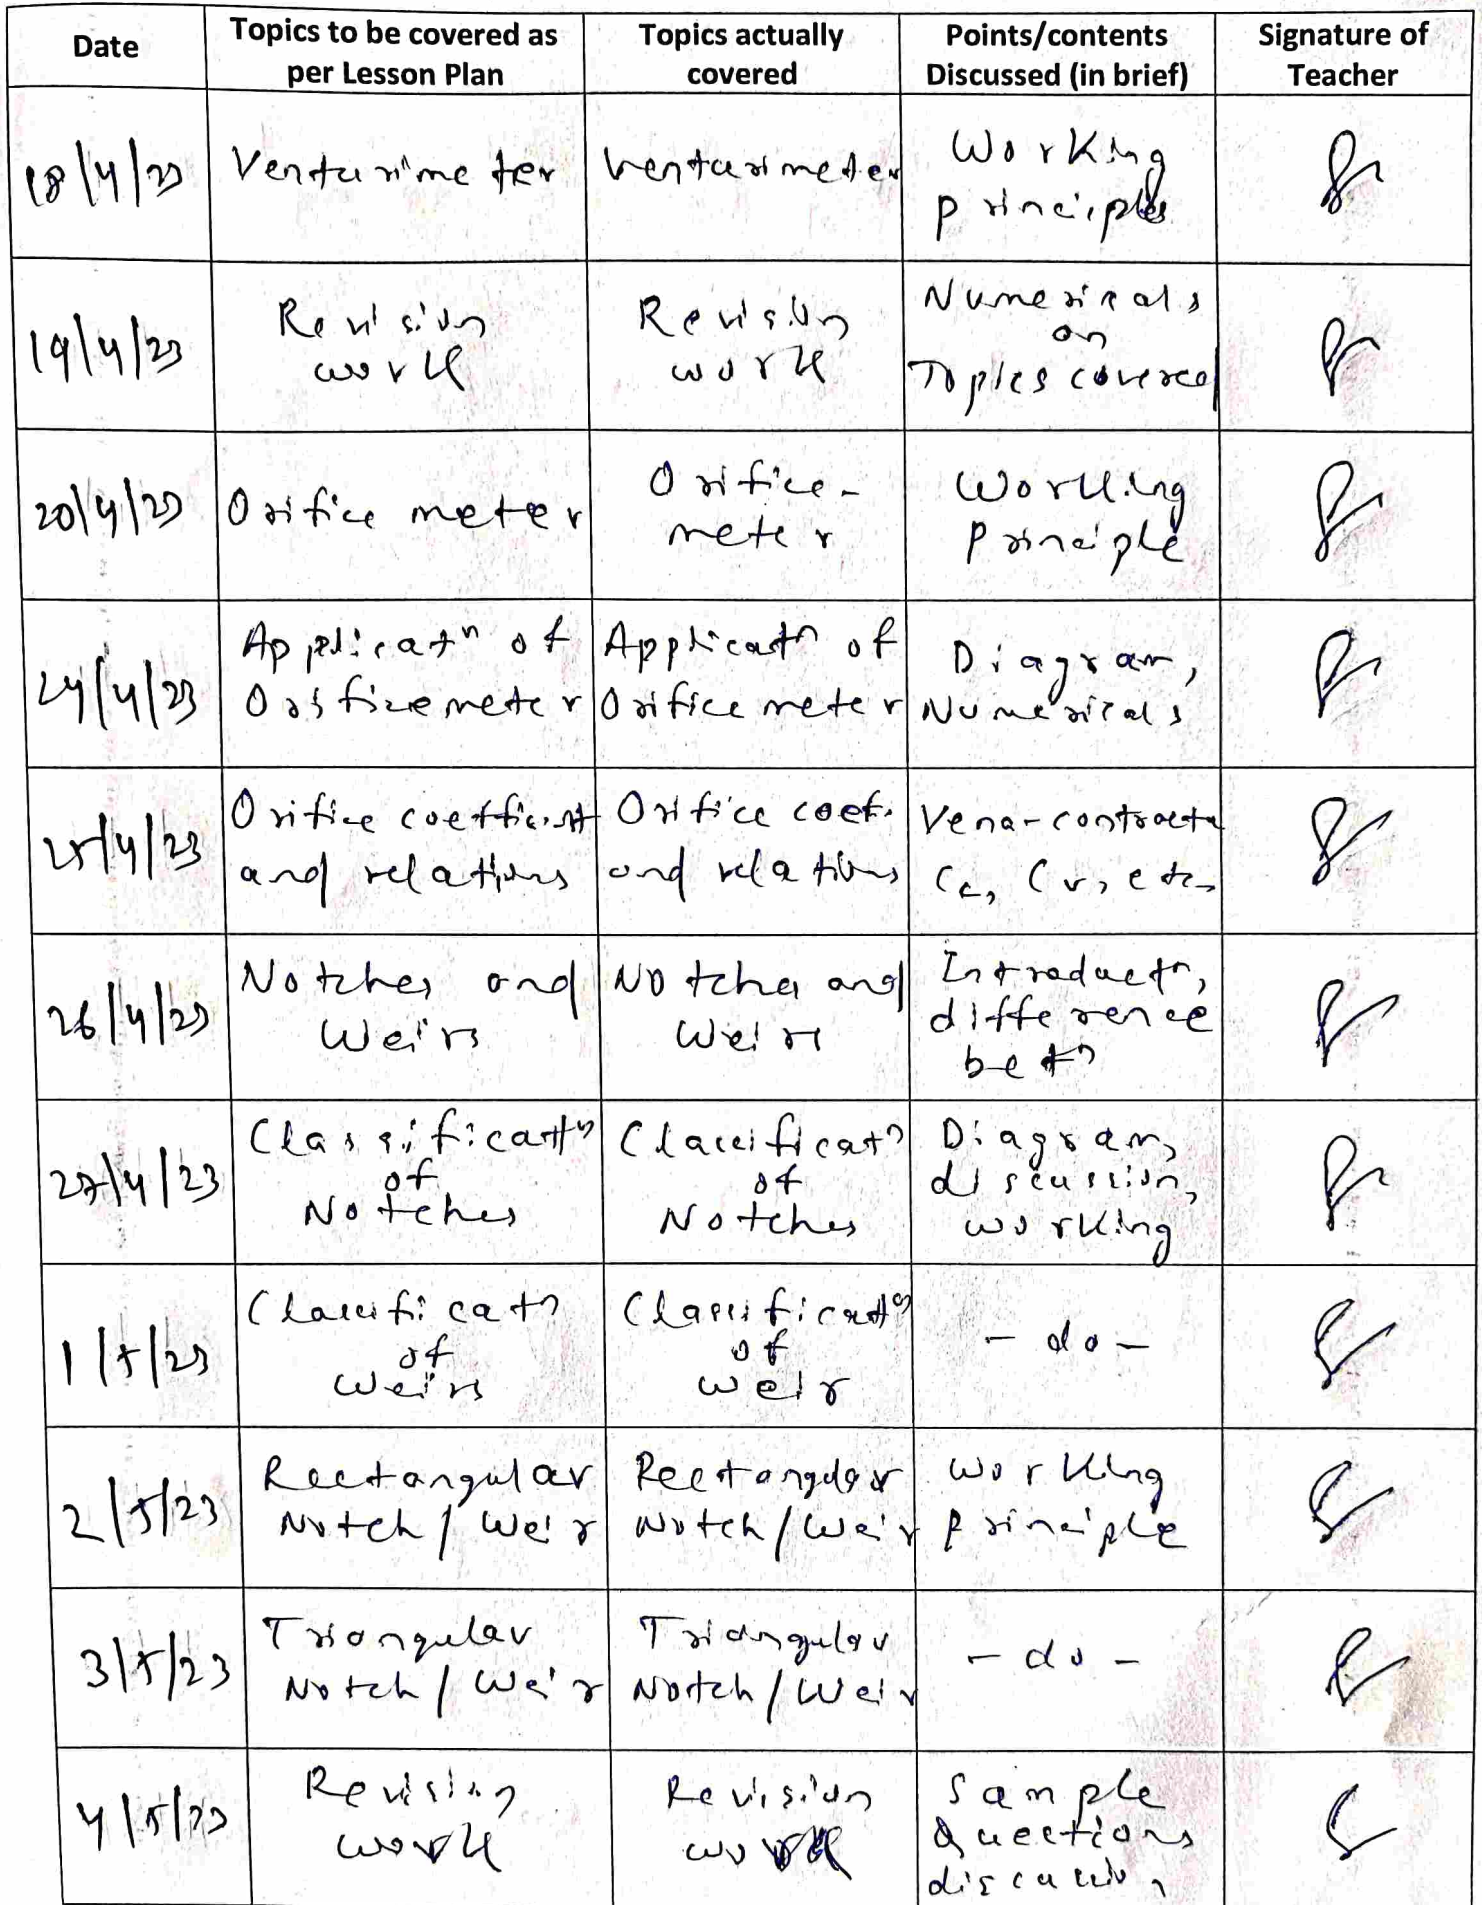 Date Topics to be covered as per Lesson Plan Topics actually covered Points/contents Discussed (in brief) Signature of Teacher
18/4/23 Venturimeter Venturimeter Working principles
19/4/23 Revision work Revision work Numericals on Topics covered
20/4/23 Orifice meter Orifice-meter Working principle
24/4/23 Applicatn of Orificemeter Applicatn of Orifice meter Diagram, Numericals
25/4/23 Orifice coefficient and relations Orifice coef. and relations Vena-contracta Cc, Cv, etc.
26/4/23 Notches and Weirs Notches and Weirs Introductn, difference betn
27/4/23 Classificatn of Notches Classificatn of Notches Diagram, discussion, working
1/5/23 Classificatn of Weirs Classificatn of Weir - do -
2/5/23 Rectangular Notch/Weir Rectangular Notch/Weir Working principle
3/5/23 Triangular Notch/Weir Triangular Notch/Weir - do -
4/5/23 Revision work Revision work Sample Questions discussion